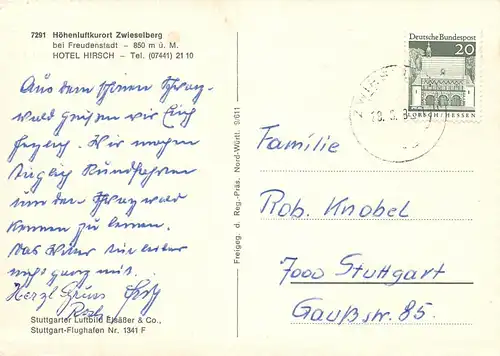 7291 Höhenluftkurort Zwieselberg
bei Freudenstadt – 850 m ü. M.
HOTEL HIRSCH – Tel. (07441) 21 10
Aus dem schönen Schwarz-
wald grüßen wir Euch
herzlich. Wir machen
täglich Rundfahrten
um den Schwarzwald
kennen zu lernen.
Das Wetter tut leider
nicht ganz mit.
Herzl. Grüße
Stuttgarter Luftbild Elsäßer & Co.,
Stuttgart-Flughafen Nr. 1341 F
Freigeg. d. Reg.-Präs. Nord-Württ. 9/611
Deutsche Bundespost
20
LORSCH / HESSEN
Familie
Rob. Knobel
7000 Stuttgart
Gaußstr. 85.